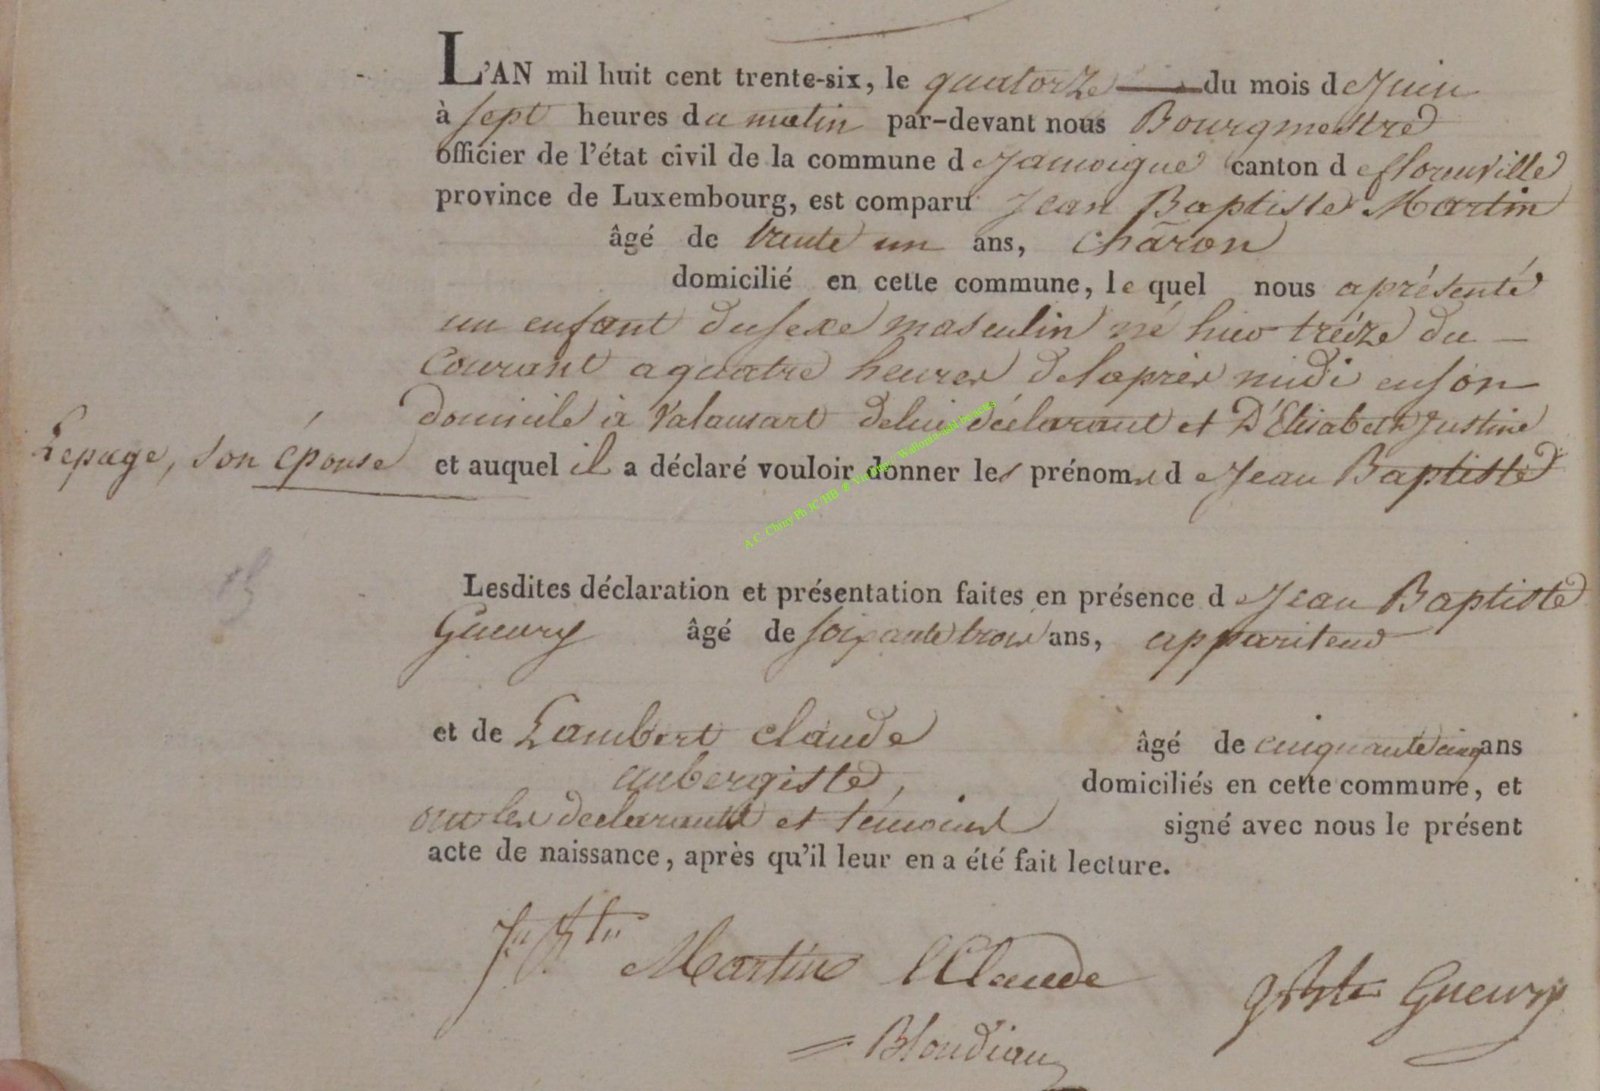 L'AN mil huit cent trente-six, le quatorze du mois de Juin
à sept heures du matin par-devant nous Bourgmestre
officier de l'état civil de la commune de Jamoigne canton de florenville
province de Luxembourg, est comparu Jean Baptiste Martin
âgé de trente un ans, charon
domicilié en cette commune, le quel nous a présenté
un enfant du sexe masculin né hier treize du
Courant a quatre heures de laprès midi en son
domicile à Valansart de lui déclarant et D'Elisabeth Justine
Lepage, son épouse
et auquel il a déclaré vouloir donner les prénoms de Jean Baptiste
A.C. Chiny Ph JC/HB
Lesdites déclaration et présentation faites en présence de Jean Baptiste
Gueury âgé de soixante trois ans, appariteur
et de Lambert Claude âgé de cinquante cinq ans
aubergiste, domiciliés en cette commune, et
ont les declarants et témoins signé avec nous le présent
acte de naissance, après qu'il leur en a été fait lecture.
Jn Bte Martin LClaude
Bte Gueury
Blondiau